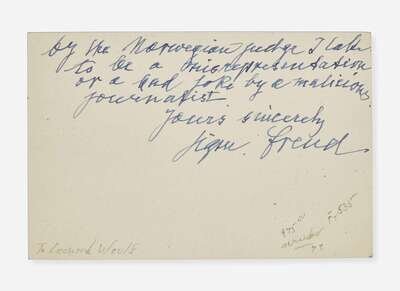 by the Norwegian judge I take
to be a misrepresentation
or a bad joke by a malicious
journalist.
Yours sincerely
Sigm. Freud.
To Leonard Woolf
F. 535